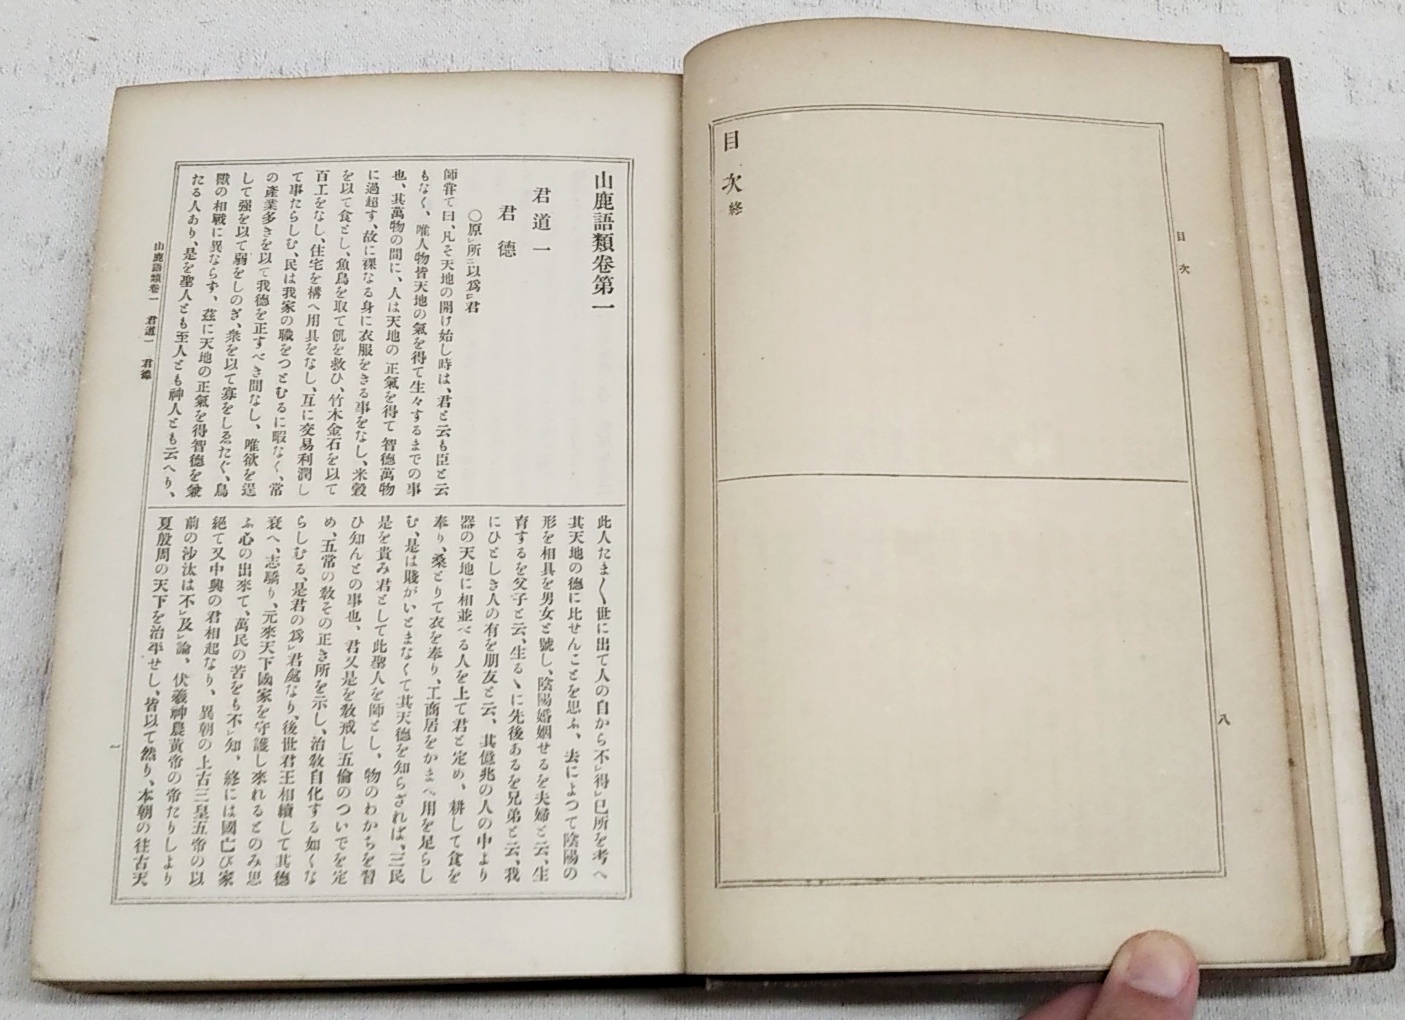 目次
八
目次終
山鹿語類卷第一
君道一
君德
〇原㆑所㆓以爲㆒㆑君
師嘗て曰、凡そ天地の開け始し時は、君と云も臣と云
もなく、唯人物皆天地の氣を得て生々するまでの事
也、其萬物の間に、人は天地の正氣を得て智德萬物
に過超す、故に裸なる身に衣服をきる事をなし、米穀
を以て食とし、魚鳥を取て飢を救ひ、竹木金石を以て
百工をなし、住宅を構へ用具をなし、互に交易利潤し
て事たらしむ、民は我家の職をつとむるに暇なく、常
の產業多きを以て我德を正すべき間なし、唯欲を逞
して强を以て弱をしのぎ、衆を以て寡をしゑたぐ、鳥
獸の相戰に異ならず、玆に天地の正氣を得智德を兼
たる人あり、是を聖人とも至人とも神人とも云へり、
此人たま〱世に出て人の自から不㆑得㆑已所を考へ
其天地の德に比せんことを思ふ、去によつて陰陽の
形を相具を男女と號し、陰陽婚姻せるを夫婦と云、生
育するを父子と云、生るゝに先後あるを兄弟と云、我
にひとしき人の有を朋友と云、其億兆の人の中より
器の天地に相並べる人を上て君と定め、耕して食を
奉り、桑とりて衣を奉り、工商居をかまへ用を足らし
む、是は賤がいとまなくて其天德を知らざれば、三民
是を貴み君として此聖人を師とし、物のわかちを習
ひ知んとの事也、君又是を敎戒し五倫のついでを定
め、五常の敎その正き所を示し、治敎自化する如くな
らしむる、是君の爲㆑君處なり、後世君王相續して其德
衰へ、志驕り、元來天下國家を守護し來れるとのみ思
ふ心の出來て、萬民の苦をも不㆑知、終には國亡び家
絕て又中興の君相起なり、異朝の上古三皇五帝の以
前の沙汰は不㆑及㆑論、伏羲神農黃帝の帝たりしより
夏殷周の天下を治平せし、皆以て然り、本朝の往古天
山鹿語類卷一 君道一 君德
一